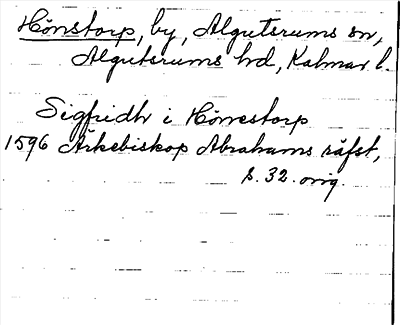 Hönstorp, by, Algutsrums sn,
Algutsrums hd, Kalmar l.
Sigfridh i Hönnestorp
1596 Ärkebiskop Abrahams räfst,
s. 32. orig.